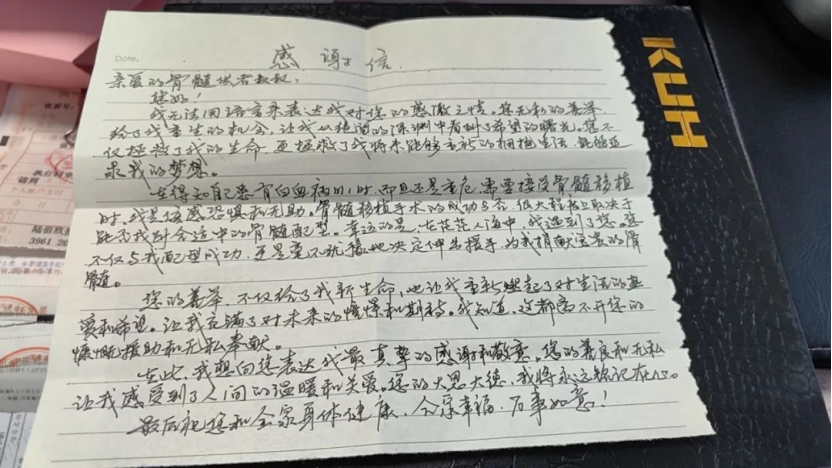 Date.
感谢信
亲爱的骨髓供者叔叔:
您好!
我无法用语言来表达我对您的感激之情。您无私的善举,
给了我重生的机会,让我从绝望的深渊中看到了希望的曙光。您不
仅拯救了我的生命,更拯救了我将来能够重新的拥抱生活,能够追
求我的梦想。
在得知自己患有白血病时,而且还是高危,需要接受骨髓移植
时,我是倍感恐惧和无助。骨髓移植手术的成功与否,很大程度上取决于
能否找到合适中的骨髓配型。幸运的是,在茫茫人海中,我遇到了您。您
不仅与我配型成功,更是毫不犹豫地决定伸出援手,为我捐献宝贵的骨
髓。
您的善举,不仅给了我新生命,也让我重新燃起了对生活的热
爱和希望。让我充满了对未来的憧憬和期待。我知道,这都离不开您的
慷慨援助和无私奉献。
在此,我想向您表达我最真挚的感谢和敬意。您的善良和无私
让我感受到了人间的温暖和关爱。您的大恩大德,我将永远铭记在心。
最后祝您和全家身体健康,合家幸福,万事如意!
KUH
陆佰玖
3961 20